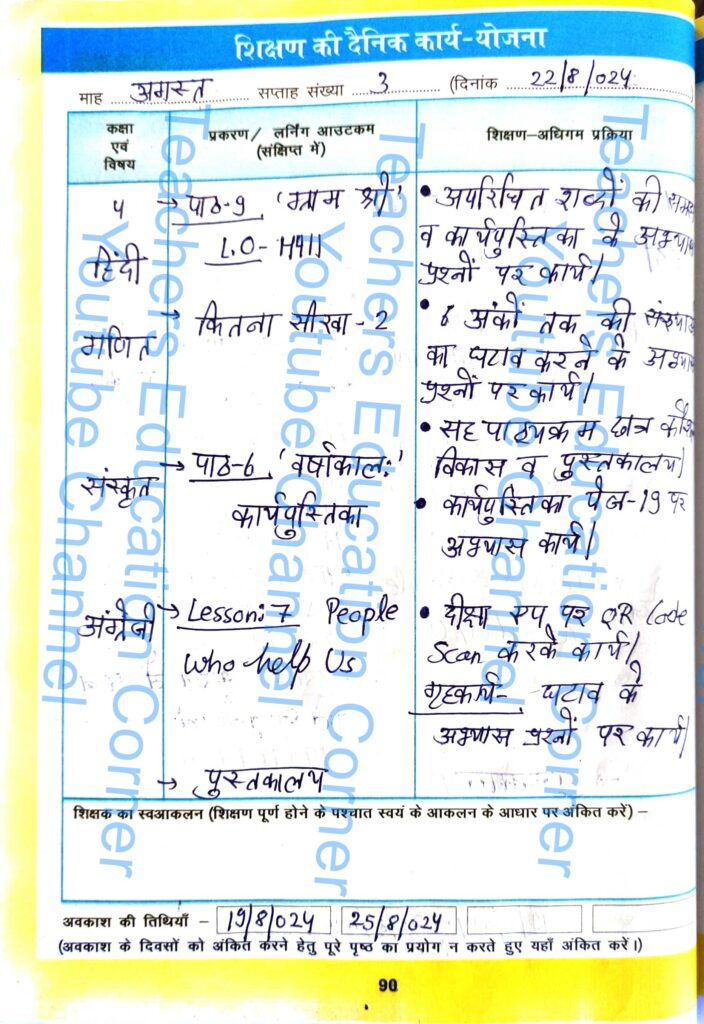 शिक्षण की दैनिक कार्य-योजना
माह अगस्त सप्ताह संख्या 3 (दिनांक 22/8/024)
कक्षा एवं विषय
प्रकरण/ लर्निंग आउटकम (संक्षिप्त में)
शिक्षण-अधिगम प्रक्रिया
५
हिंदी
→ पाठ-9 'ग्राम श्री'
L.O- H411
• अपरिचित शब्दों की
व कार्यपुस्तिका के अभ्यास
प्रश्नों पर कार्य।
गणित
→ कितना सीखा - 2
• 6 अंकों तक की संख्याओं
का घटाव करने के अभ्यास
प्रश्नों पर कार्य।
• सह पाठ्यक्रम छात्र
विकास व पुस्तकालय।
संस्कृत
→ पाठ-6 'वर्षाकालः'
कार्यपुस्तिका
• कार्यपुस्तिका पेज-19 पर
अभ्यास कार्य।
अंग्रेजी
→ Lesson: 7 People
who help Us
• दीक्षा एप पर QR Code
Scan करके कार्य।
गृहकार्य- घटाव के
अभ्यास प्रश्नों पर कार्य।
→ पुस्तकालय
शिक्षक का स्वआकलन (शिक्षण पूर्ण होने के पश्चात स्वयं के आकलन के आधार पर अंकित करें) –
अवकाश की तिथियाँ – 19/8/024 25/8/024
(अवकाश के दिवसों को अंकित करने हेतु पूरे पृष्ठ का प्रयोग न करते हुए यहाँ अंकित करें।)
90
Teachers Education Corner
Youtube Channel
Teachers Education Corner
Youtube Channel
Teachers Education Corner
Youtube Channel